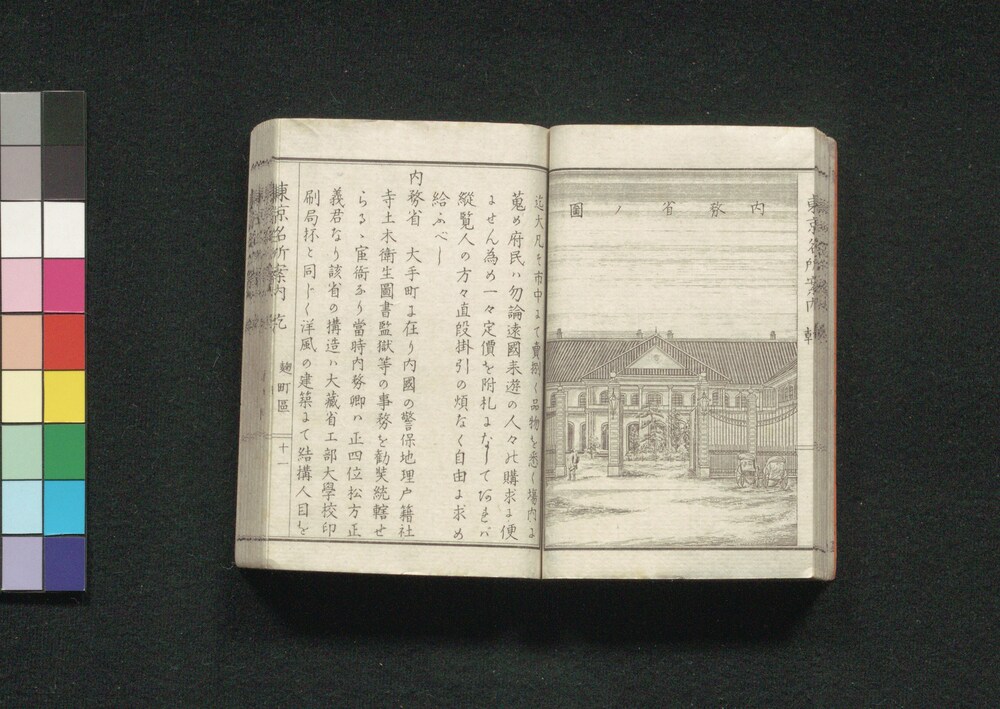 内務省ノ圖
迄大凡そ市中よて賣捌く品物を悉く塲内よ
蒐め府民ハ勿論遠國来遊の人々此購求よ便
よせん為め一々定價を附札よなして有れバ
縦覧人の方々直段掛引の煩なく自由よ求め
給ふべし
内務省 大手町よ在り内國の警保地理戸籍社
寺土木衛生圖書監獄等の事務を勧奨統轄せ
らるゝ宦衙なり當時内務卿ハ正四位松方正
義君なり該省の構造ハ大藏省工部大學校印
刷局抔と同じく洋風の建築よて結構人目を
東京名所案内 乾
麹町區
十一